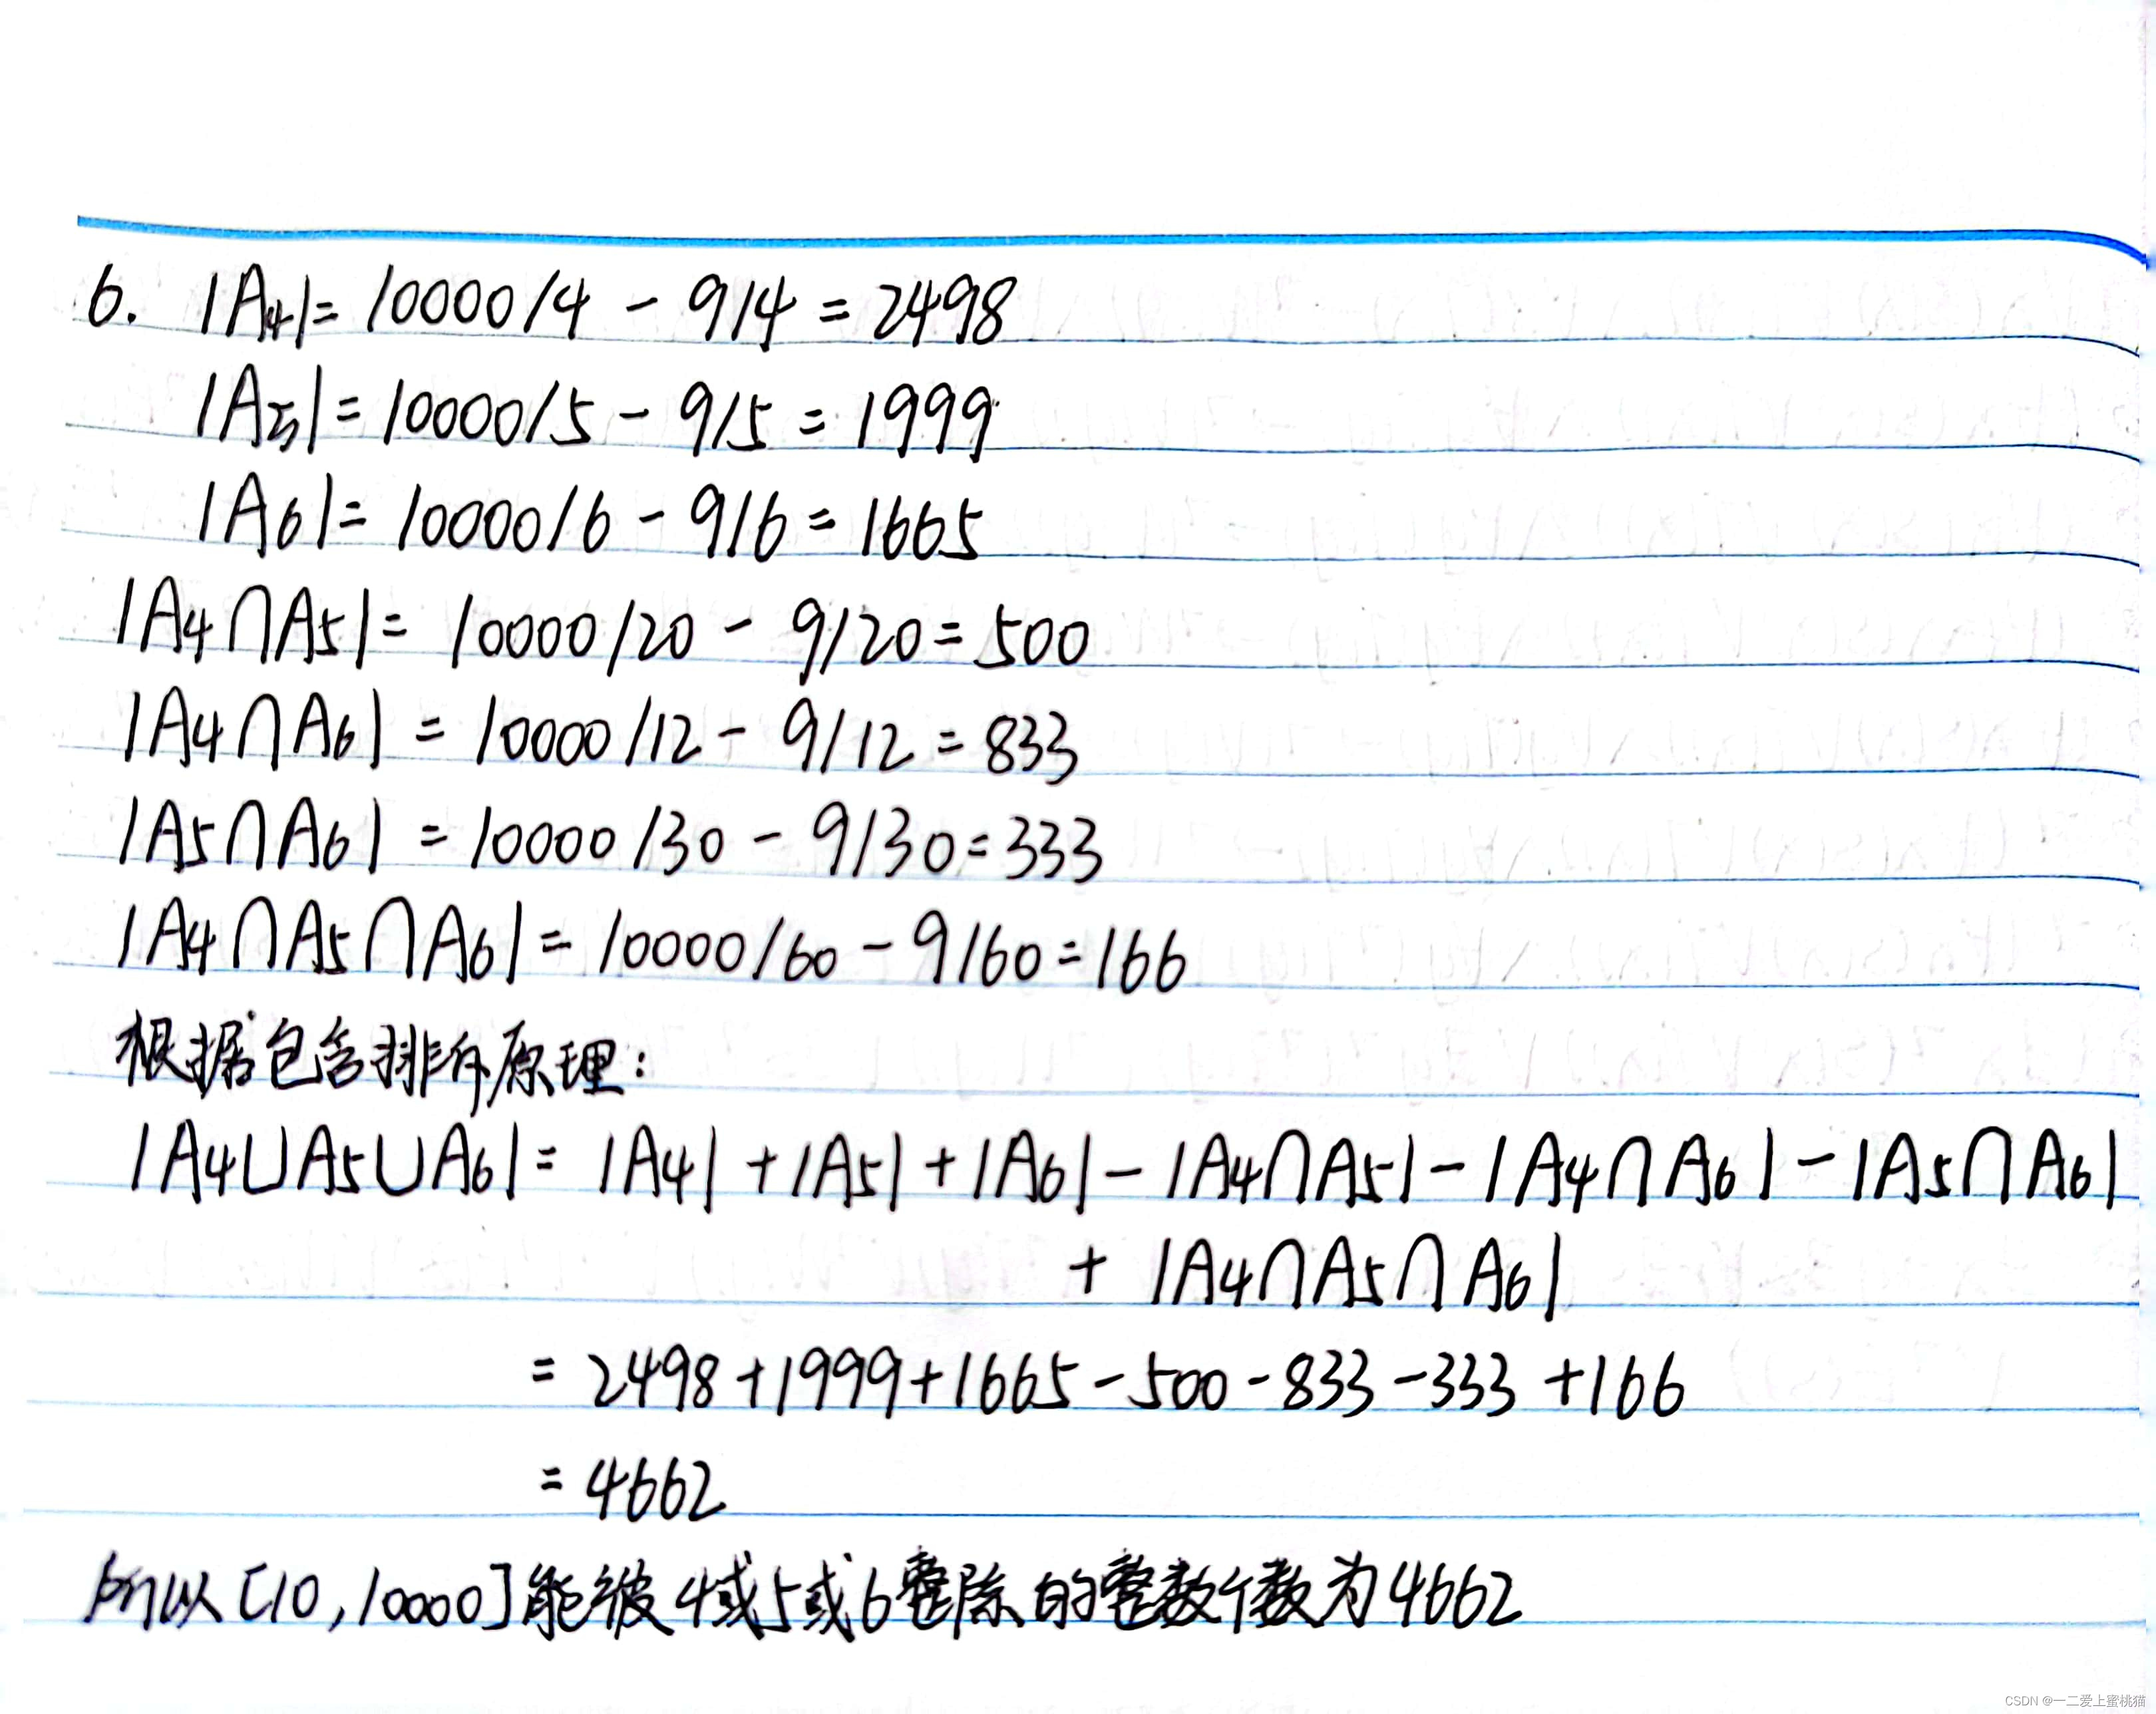 6. |A4|= 10000/4 - 9/4 = 2498
|A5|= 10000/5 - 9/5 = 1999
|A6|= 10000/6 - 9/6 = 1665
|A4∩A5|= 10000/20 - 9/20 = 500
|A4∩A6| = 10000/12 - 9/12 = 833
|A5∩A6| = 10000/30 - 9/30 = 333
|A4∩A5∩A6| = 10000/60 - 9/60 = 166
根据包含排斥原理:
|A4∪A5∪A6| = |A4| + |A5| + |A6| - |A4∩A5| - |A4∩A6| - |A5∩A6|
+ |A4∩A5∩A6|
= 2498+1999+1665-500-833-333+166
= 4662
所以[10,10000]能被4或5或6整除的整数个数为4662
CSDN @一二爱上蜜桃猫